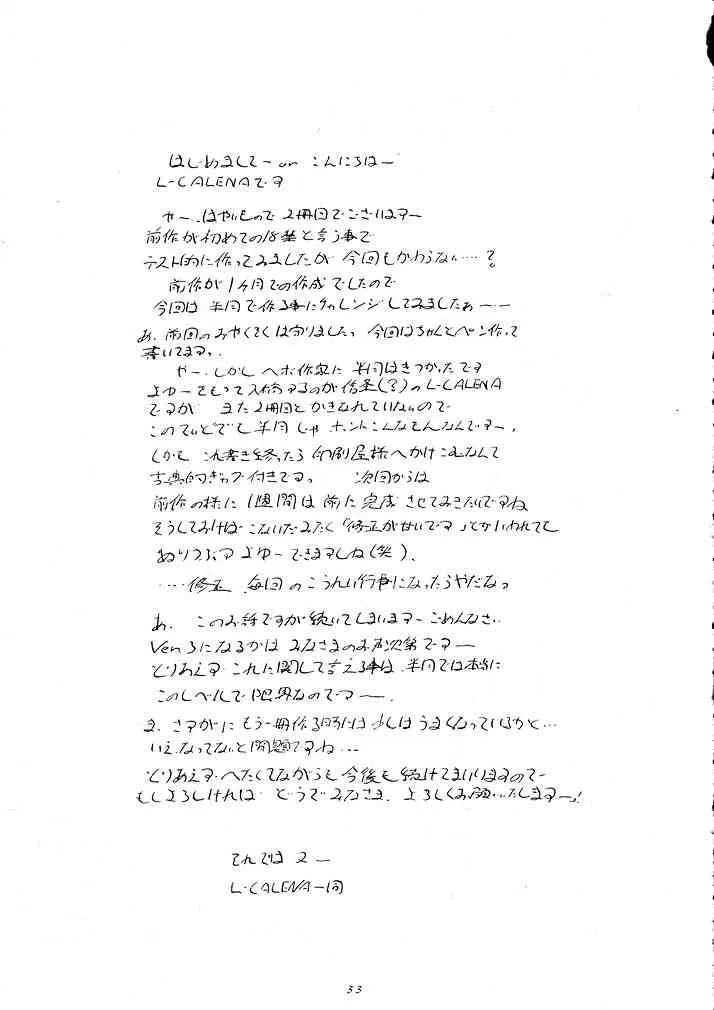 はじめまして〜 or こんにちは〜
L-CALENAです
やー、はやいもので 2冊目でございますー
前作が初めての18禁と言う事で
テスト的に作ってみましたが 今回もかわらない…‥?
前作が1ヶ月での作成でしたので
今回は 半月で作る事にチャレンジしてみましたぁーー
あ、前回のおやくそくは守りました。今回はちゃんとペン作って
書いてます。
やー、しかし ヘボ作家に 半月はきつかったです
よゆーをもって入稿するのが信条(?)の L-CALENA
ですが まだ2冊目とかきなれていないので
このていどでも半月じゃ ホントこんなもんなんですー、
しかも これ書き終ったら 印刷屋様へかけこむなんて
古典的ギャグ付きです。 次回からは
前作の様に 1週間は 前に 完成 させておきたいですね
そうしておけば こないだみたく「修正が甘いです」とかいわれても
ぬりつぶす よゆーできますしね(笑)、
‥‥修正 毎回 のこうれい行事になったらやだな。
あ、 このお話ですが続いてしまいますー ごめんなさい
Ver 3になるかは みなさまのお声次第ですー
とりあえず これに関して言える事は 半月では本当に
このレベルで限界なのですー.
ま、さすがに もう一冊作る時には 少しはうまくなっているかと…
いえ、なってないと問題ですね…
とりあえず へたくそながらも 今後も 続けてまいりますのでー
もしよろしければ どうぞ みなさま、よろしくお願いいたしますー!
それでは 2ー
L-CALENA一同
33